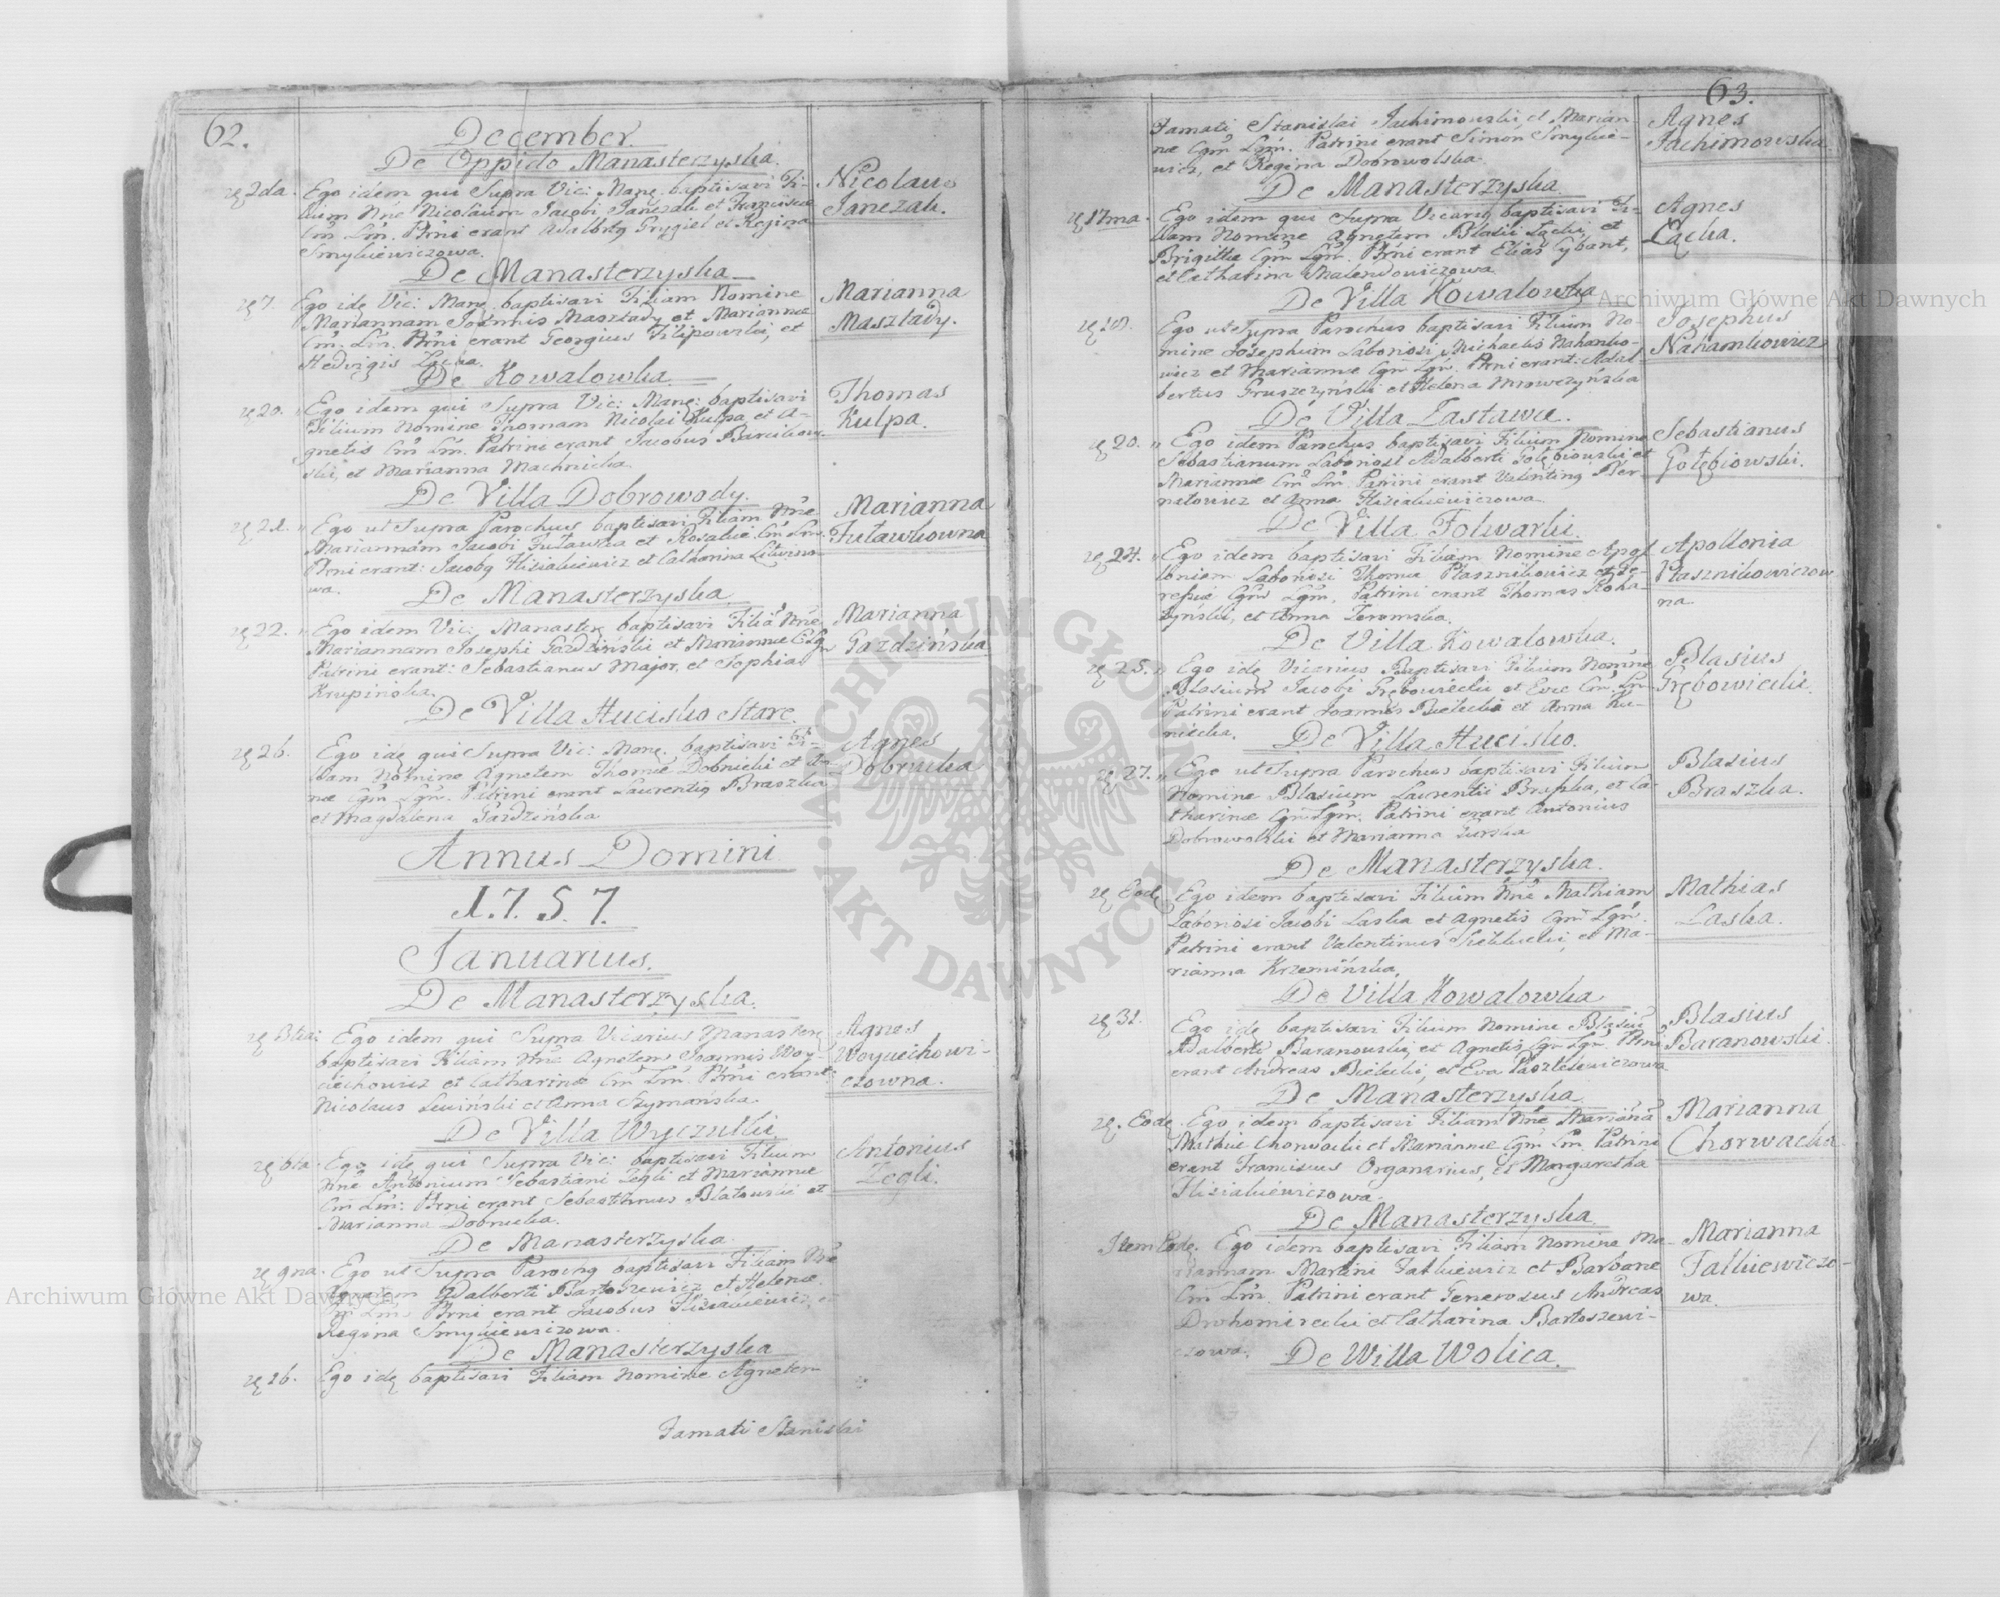 62.
December.
De Oppido Manasterzyska.
2da. Ego idem qui Supra Vic: Mane. baptisavi Fi-
lium Nñe Nicolaum Jacobi Janczak et Francisca
Cm̃ Lm̃. Ptrni erant Adalbertq Grygiel et Regina
Smykiewiczowa.
Nicolaus
Janczak.
De Manasterzyska
7. Ego idę Vic: Manę baptisavi Filiam Nomine
Mariannam Joannis Masztady et Mariannæ
Cm̃. Lm̃. Ptrni erant Georgius Filipowski, et
Hedvigis Łącka.
Marianna
Masztady.
De Kowalowka
20. Ego idem qui Supra Vic: Mane: baptisavi
Filium Nomine Thomam Nicolai Kulpa et A-
gnetis Cm̃ Lm̃. Patrini erant Jacobus
ski, et Marianna Machnicka
Thomas
Kulpa.
De Villa Dobrowody.
21. Ego ut Supra Parochus baptisavi Filiam Nñe
Mariannam Jacobi Futawka et Rosaliæ Cm̃ Lm̃.
Ptrni erant: Jacobq Flisiakiewicz et Catharina Litwino-
wa.
Marianna
Futawkowna
De Manasterzyska
22. Ego idem Vic: Manaster baptisavi Filiã Nñe
Mariannam Josephi Gazdziński et Mariannæ
Patrini erant: Sebastianus Major, et Sophia
Krupińska.
Marianna
Gazdzińska
De Villa Hucisko Stare.
26. Ego idę qui Supra Vic: Manę. baptisavi Fi-
liam Nomine Agnetem Thomæ Dobnicki et An-
næ Cgm̃ Lgm̃. Patrini erant Laurentiq Braszka
et Magdalena Gardzińska
Agnes
Dobnicka
Annus Domini
1.7.5.7.
Januarius.
De Manasterzyska.
3tia: Ego idem qui Supra Vicarius Manaster
baptisavi Filiam Nñe Agnetem Joannis Woy-
ciechowicz et Catharinæ Cm̃ Lm̃. Ptrni erant:
Nicolaus Lewiński et Anna Szymańska.
Agnes
Woyciechowi-
czowna.
De Villa Wyczułki
6ta. Ego idę qui Supra Vic: baptisavi Filium
Nñe Antonium Sebastiani Zegli et Mariannæ
Cm̃ Lm̃: Ptrni erant Sebastianus Blatowski et
Marianna Dobnicka.
Antonius
Zegli.
De Manasterzyska.
9na. Ego ut Supra Parochq baptisavi Filiam Nñe
Adalberti Bartoszewicz et Helenæ
Cm̃ Lm̃ Ptrni erant Jacobus Flisiakiewicz, et
Regina Smykiewiczowa.
De Manasterzyska
16. Ego idę baptisavi Filiam Nomine Agnetem
Famati Stanislai
63.
Famati Stanislai Jachimowski et Marian-
næ Cgm̃ Lgm̃. Patrini erant Simon Smykie-
wicz, et Regina Dobrowolska.
Agnes
Jachimowska.
De Manasterzyska
17ma. Ego idem qui Supra Vicariq baptisavi Fi-
liam Nomine Agnetem Blasii Łącki, et
Brigittæ Cgm̃ Lgm̃. Ptrni erant Elias Cybant,
et Catharina Malendowiczowa
Agnes
Łącka.
De Villa Kowalowka
Ego ut Supra Parochus baptisavi Filium No-
mine Josephum Laboriosi Michaelis Nahanko-
wicz et Mariannæ Cgm̃ Lgm̃. Ptrni erant: Adal-
bertus Gruszczyński et Helena Mrowczyńska
Josephus
Nahamkowicz
De Villa Zastawce.
20. Ego idem Parochus baptisavi Filium Nomine
Sebastianum Laboriosi Adalberti Gołębiowski et
Mariannæ Cm̃ Lm̃. Patrini erant Valentinq Ber-
natowicz et Anna Flisiakiewiczowa.
Sebastianus
Gołębiowski.
De Villa Folwarki.
24. Ego idem baptisavi Filiam Nomine Apol-
loniam Laboriosi Thomæ Płasznikowicz et Te-
resiæ Cgm̃ Lgm̃. Patrini erant Thomas Koha-
tyński, et Anna Jeromska.
Apollonia
Płasznikowiczow-
na
De Villa Kowalowka.
25. Ego idę Vicarius Baptisavi Filium Nomine
Blasium Jacobi Grębowiecki et Evæ Cm̃. Lm̃.
Patrini erant Joannes Bielecki et Anna Ku-
nicka.
Blasius
Grębowiecki.
De Villa Hucisko.
27. Ego ut Supra Parochus baptisavi Filium
Nomine Blasium Laurentii Braszka, et Ca-
tharinæ Cgm̃ Lgm̃. Patrini erant Antonius
Dobrowolski et Marianna Turska
Blasius
Braszka.
De Manasterzyska.
Eodę Ego idem baptisavi Filium Nñe Mathiam
Laboriosi Jacobi Laska et Agnetis Cgm̃ Lgm̃.
Patrini erant Valentinus et Ma-
rianna Krzemińska.
Mathias
Laska.
De Villa Kowalowka
31. Ego idę baptisavi Filium Nomine Blasiũ
Adalberti Baranowski, et Agnetis Cgm̃ Lgm̃. Ptrni
erant Andreas Bielecki, et Eva Pasztelewiczowa
Blasius
Baranowski.
De Manasterzyska
Eodę. Ego idem baptisavi Filiam Nñe Mariañã
Mathiæ Chorwacki et Mariannæ Cgm̃ Lm̃ Patrini
erant Franciscus Organarius, et Margaretha
Flisiakiewiczowa.
Marianna
Chorwacka
De Manasterzyska
Item Eodę. Ego idem baptisavi Filiam Nomine Ma-
riannam Martini Falkiewicz et Barbaræ
Cm̃ Lm̃. Patrini erant Generosus Andreas
Drohomirecki et Catharina Bartoszewi-
czowa.
Marianna
Falkiewiczo-
wa.
De Willa Wolica.
Archiwum Główne Akt Dawnych
Archiwum Główne Akt Dawnych
ARCHIWUM GŁÓWNE
AKT DAWNYCH